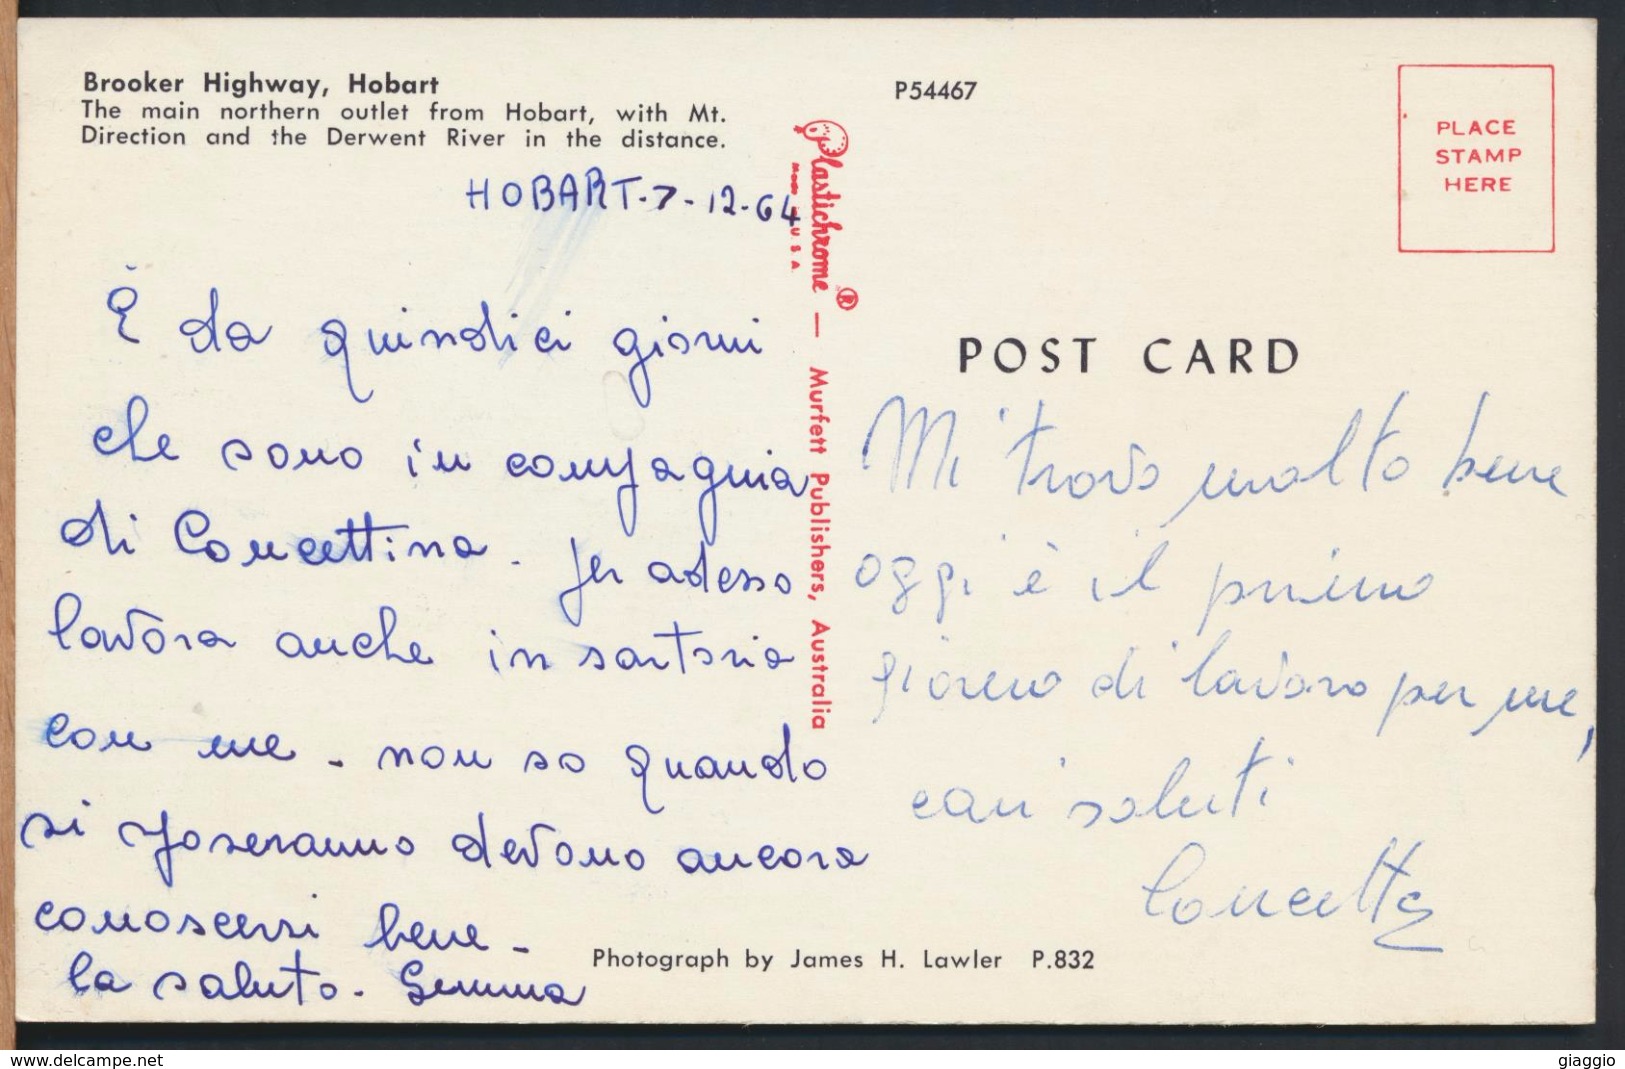 Brooker Highway, Hobart
The main northern outlet from Hobart, with Mt.
Direction and the Derwent River in the distance.
HOBART-7-12-64
È da quindici giorni
che sono in compagnia
di Concettina. Per adesso
lavora anche in sartoria
con me - non so quando
si sposeranno devono ancora
conoscersi bene -
La saluto. Gemma
Plastichrome ® — Murfett Publishers, Australia
MADE IN U S A
P54467
PLACE
STAMP
HERE
POST CARD
Mi trovo molto bene
oggi è il primo
giorno di lavoro per me,
cari saluti
Concetta
Photograph by James H. Lawler P.832
www.delcampe.net
giaggio